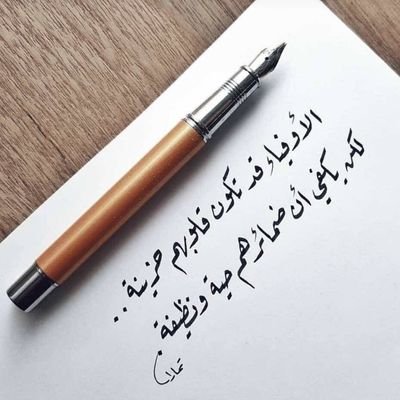 الأوفياء قد تكون قلوبهم حزينة..
لكن يكفي أن ضمائرهم حية ونظيفة.